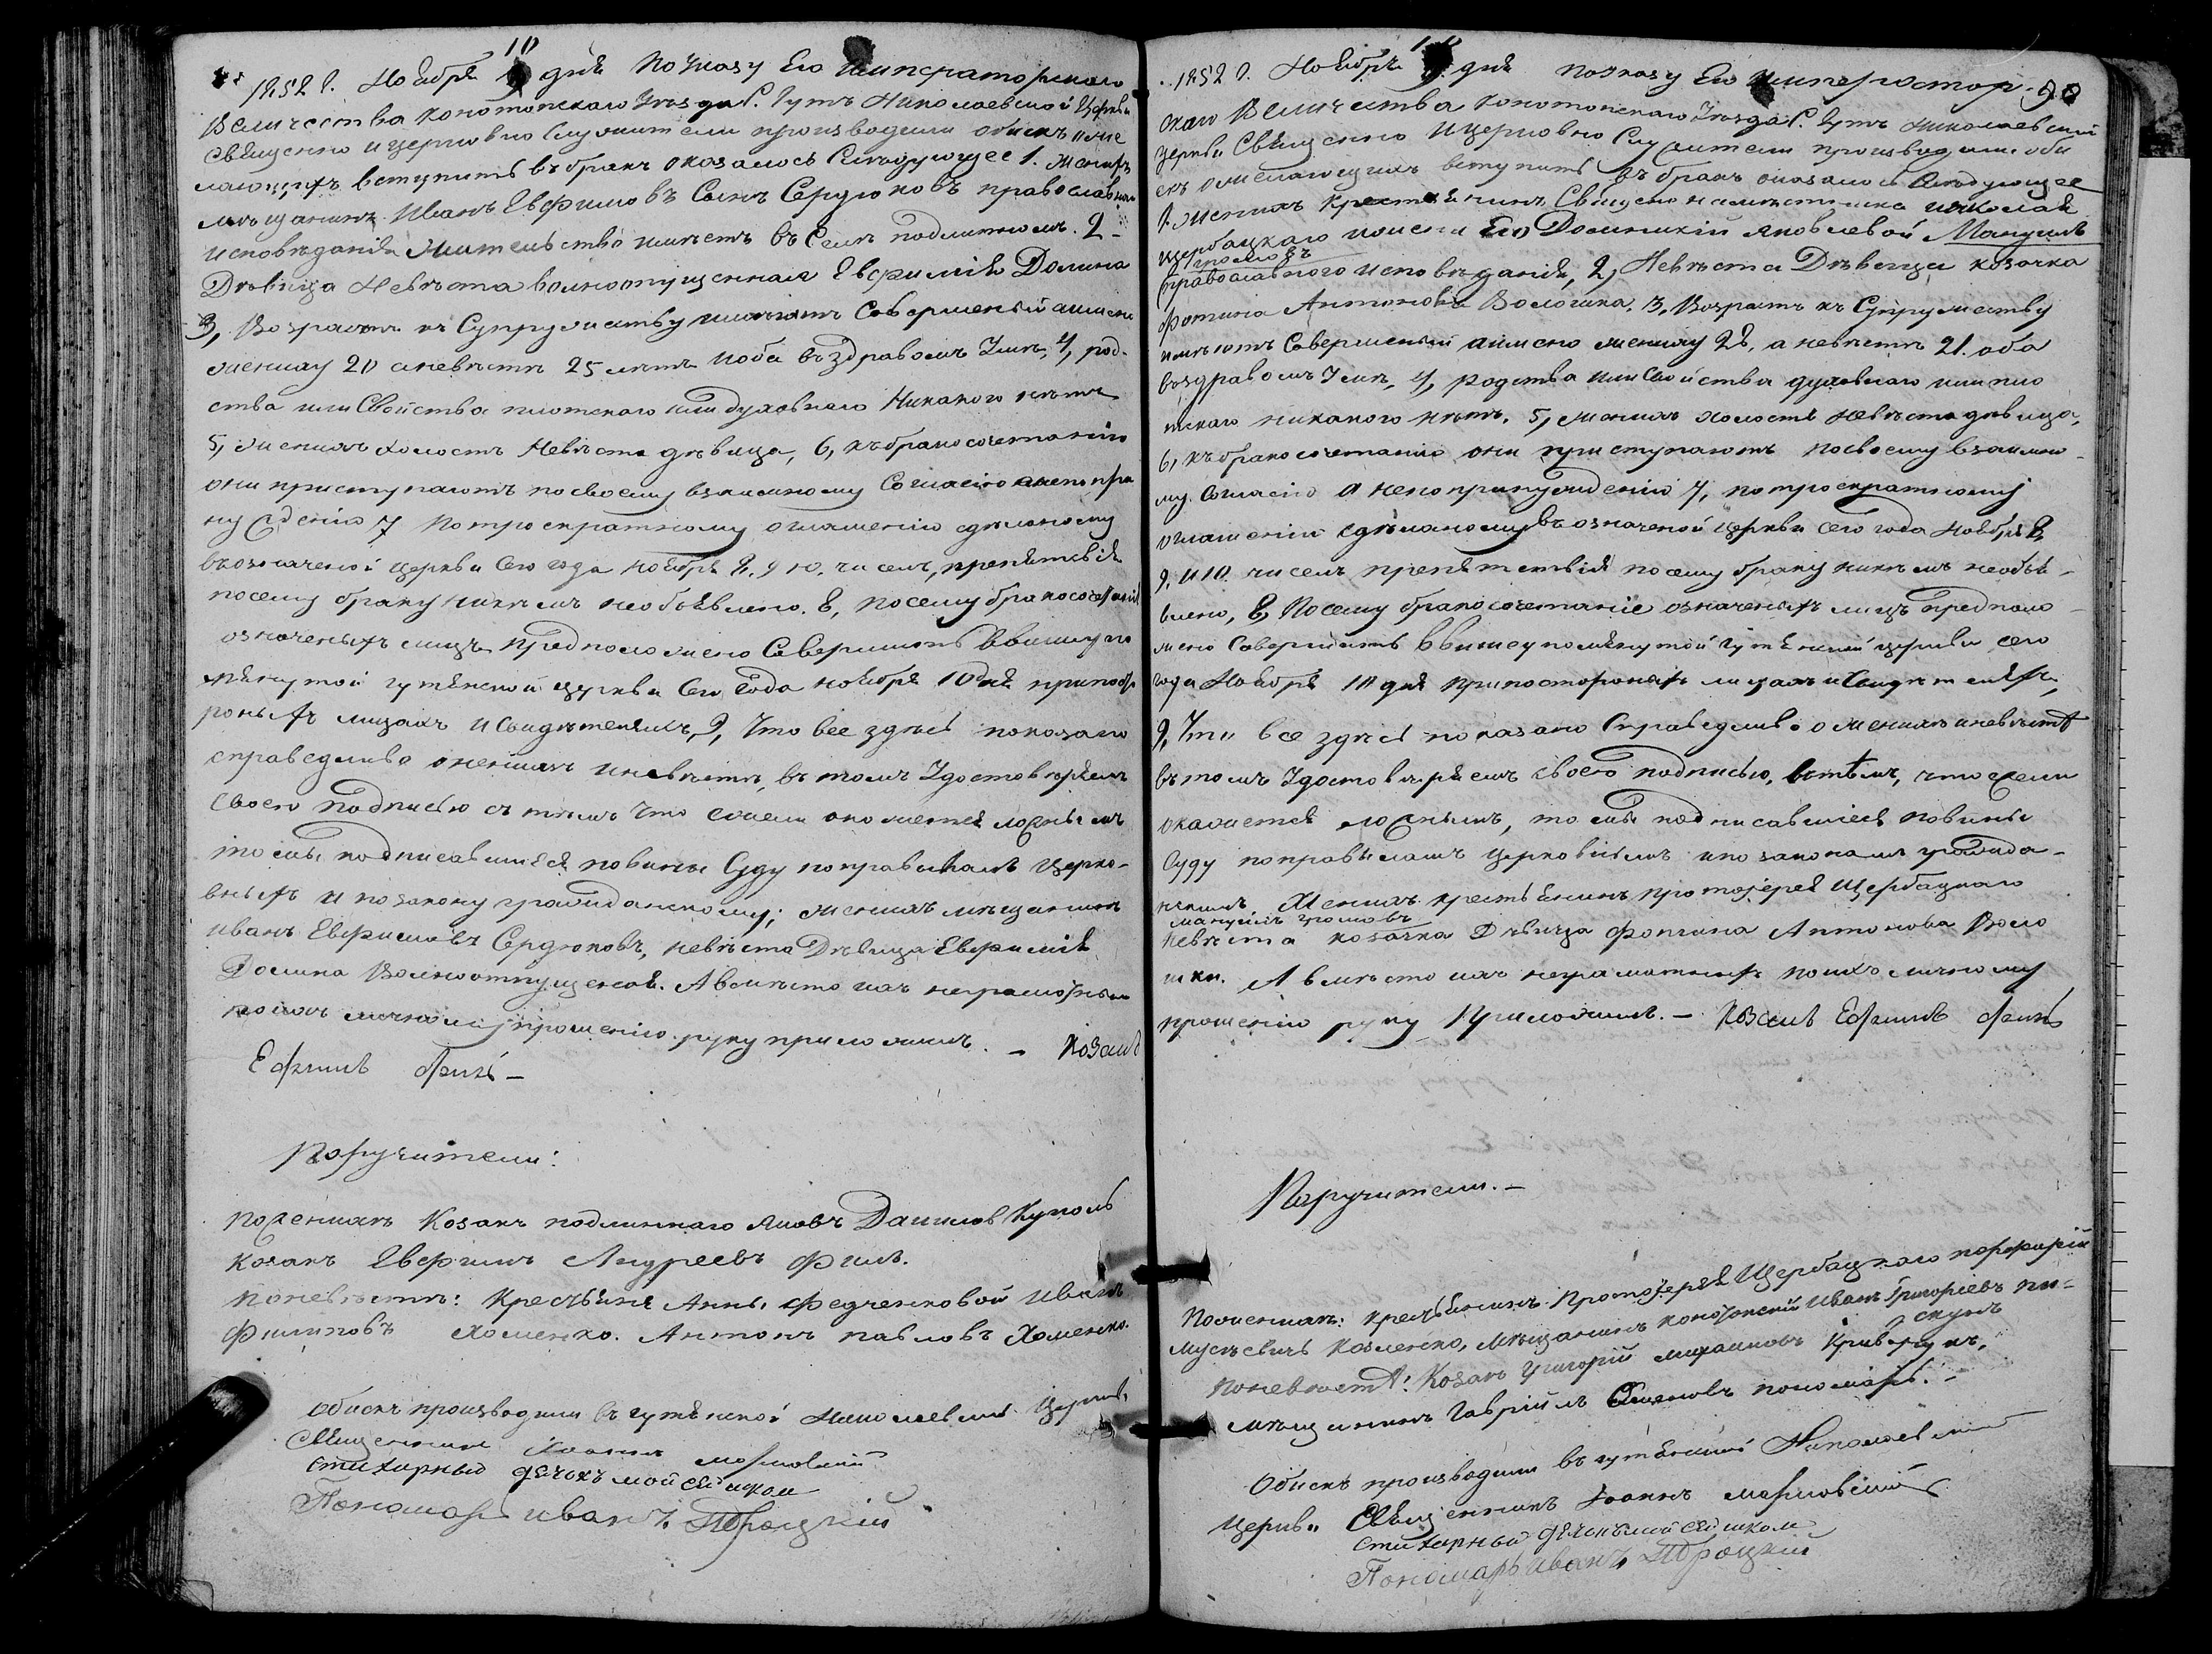 1852 г. Ноября 10 дня По Указу Его Императорскаго
Величества Конотопскаго Уезда С. Гутъ Николаевской Церкви
Священно и церковно Служители производили обыскъ о же
лающихъ вступить въ бракъ оказалось Следующее 1. Женихъ
мѣщанинъ Иванъ Евфимовъ Сынъ Сердюковъ православнаго
исповѣданія Жительство имѣетъ въ Селѣ подлипномъ. 2-
Дѣвица Невѣста вольноотпущенная Евфимія Долина
3, Возрастъ къ Супружеству имѣютъ Совершеный аимено
жениху 20 аневѣстѣ 25 лѣтъ иоба въздравомъ Умѣ, 4, род-
ства или Свойства плотскаго или духовнаго Никакого нѣтъ
5, женихъ холостъ Невѣста дѣвица, 6, къбракосочетанію
они приступаютъ посвоему взаимному Согласію анепопри
нужденію 7 Потроекратному оглашенію сдѣланому
въозначеной церкви Сего года ноября 8. 9 10. чиселъ, препятствія
посему браку никѣмъ необъявлено. 8, посему бракосочетаніе
означеныхъ лицъ предположено Совершить Ввышеупо
мянутой гутянской церкви Сего Года ноября 10 дня припосто
роныхъ лицахъ иСвидѣтеляхъ, 9, Что все здѣсь показано
справедливо оженихѣ иневѣстѣ, въ томъ Удостовѣряемъ
Своею подписью съ тѣмъ Что ежели окажется ложнымъ
то мы подписавшияся повины Суду поправиламъ Церко-
внымъ и позакону гражданскому; женихъ мѣщанинъ
Иванъ Евфимовъ Сердюковъ, невѣста Дѣвица Евфимія
Долина Вольноотпущеная. Авмѣсто ихъ неграмотныхъ
поихъ личному прошенію руку приложилъ. – Козакъ
Ефимъ Филь –
Поручители:
пожениху Козакъ подлипнаго Яковъ Данилов Куполь
козакъ Евфимъ Андреевъ Филь.
Поневѣстѣ: Крестьяне Анны Федченковой Иванъ
Филиповъ Хоменко. Антонъ павловъ Хоменко.
Обыскъ производили въ гутянской Николаевской Церкви
Священникъ Іоаннъ
стихарный дячокъ мойсей
Пономарь Иванъ Троцкій
1852 г. Ноября 10 дня Поуказу Его Императорс- 90
скаго Величества Конотопскаго Уезда С. Гутъ Николаевской
церкви Священно ИЦерковно Служители производили обы
скъ ожелающихъ вступить въ бракъ оказалось Следующее
1. Женихъ Крестьянинъ Священнонамѣстника николая
Щербацкаго Его Яковлевой Мануилъ
громовъ
православного исповѣданія, 2, Невѣста Дѣвица козачка
Фотина Антонова Волошка, 3, Возрастъ къ Супружеству
имѣютъ Совершеный аимено жениху 28, а невѣстѣ 21. оба
въздравомъ Умѣ, 4, родства или Свойства духовнаго или пло
тскаго никакого нѣтъ. 5, женихъ холостъ невѣста дѣвица,
6, къбракосочетанію они приступаютъ посвоему взаимно-
му согласію а непопринуждению 7, потроекратному
оглашенію сдѣланому въ означеной церкви сего года Ноября 8,
9. и 10. чиселъ препятствія посему браку никѣмъ необъя-
влено, 8, Посему бракосочетаніе означеныхъ лицъ предполо-
жено Совершить Ввышеупомянутой гутянской церкви сего
года Ноября 10 дня припостороныхъ лицахъ иСвидѣтеляхъ,
9, Что все здѣсь показано Справедливо оженихѣ иневѣстѣ
въ томъ Удостовѣряемъ своею подписью, вѣтѣмъ, что ежели
окажется ложнымъ, то мы подписавшіеся повины
Суду поправиламъ церковнымъ ипозаконамъ гражда-
нскимъ Женихъ крестьянинъ протоіерея Щербацкаго
мануилъ громовъ
Невѣста козачка Дѣвица Фотина Антонова Воло
шка. Авмѣсто ихъ неграматныхъ поихъ личному
прошению руку Приложилъ. – Козакъ Ефимъ Филь
Поручители. –
Пожениху: крестьянинъ Протоіерея Щербацкаго порфирій
Козленко, мѣщанинъ конотопскій Иванъ Григоріевъ пи-
скунъ
Поневѣстѣ: Козакъ Григорій михаиловъ
мѣщанинъ Гавріилъ Семеновъ пономарь. –
Обыскъ производили въ гутянской Николаевской
Церкви Священникъ Іоаннъ
стихарный дячокъ мойсей
Пономарь Иванъ Троцкій